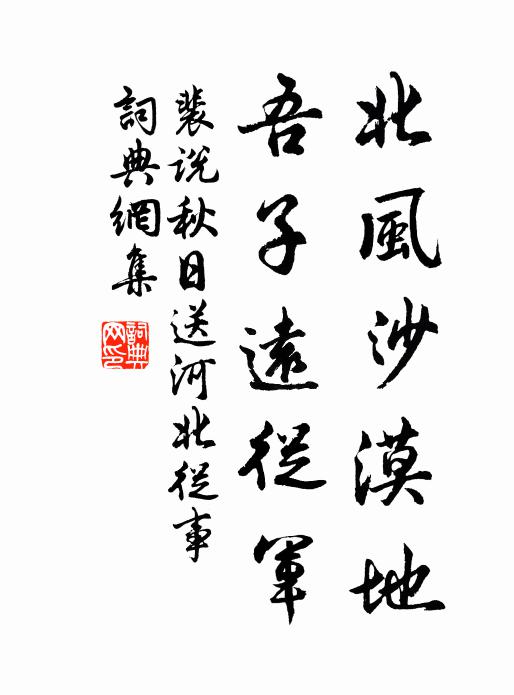 北風沙漠地
吾子遠從軍
裴說秋日送河北從事
詞典網集
詞典
网印